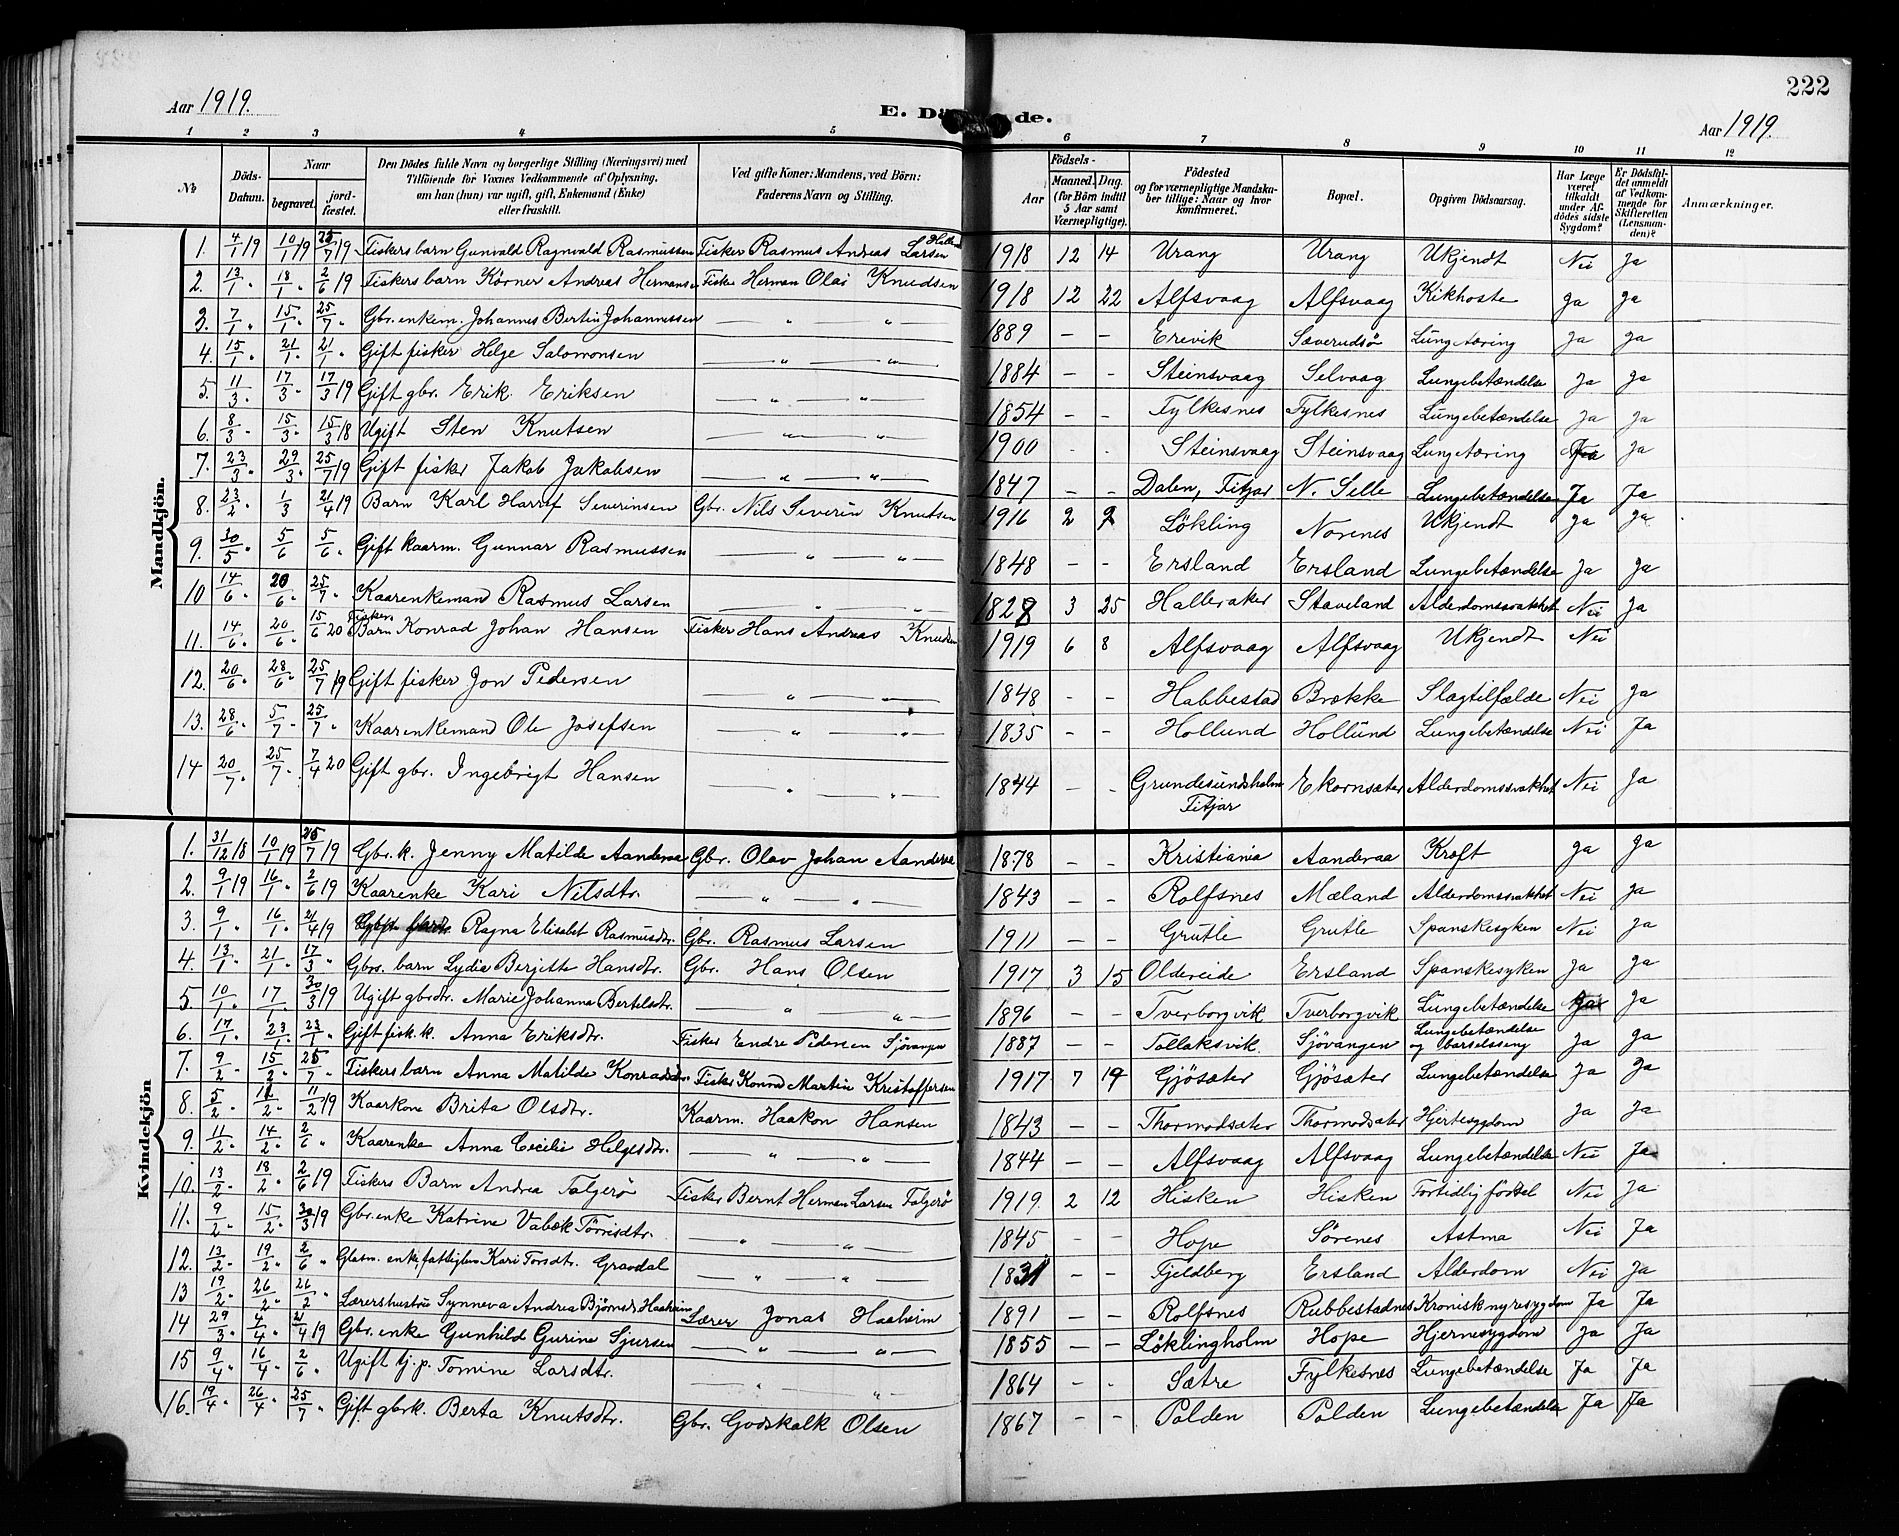 222
Aar 1919.
E. Dö de.
Aar 1919.
1 2 3 4 5 6 7 8 9 10 11 12
No
Döds-Datum.
Naar begravet. jord-fæstet.
Den Dödes fulde Navn og borgerlige Stilling (Næringsvei) med Tilföiende for Voxnes Vedkommende af Oplysning, om han (hun) var ugift, gift, Enkemand (Enke) eller fraskilt.
Ved gifte Koner: Mandens, ved Börn: Faderens Navn og Stilling.
Födsels-
Aar
Maaned. Dag. (for Börn indtil 5 Aar samt Værnepligtige).
Födested og for værnepligtige Mandskaber tillige: Naar og hvor konfirmeret.
Bopæl.
Opgiven Dödsaarsag.
Har Læge været tilkaldt under Afdödes sidste Sygdom?
Er Dödsfaldet anmeldt af Vedkommende for Skifteretten (Lensmanden)?
Anmærkninger.
Mandkjön.
1. 4/1 19 10/1 19 25/7 19 Fiskers barn Gunvald Ragnvald Rasmussen Fisker Rasmus Andreas Larsen 1918 12 14 Urang Urang Ukjendt Nei Ja
2. 13/1 " 18/1 " 2/6 19 Fiskers barn Körner Andreas Hermansen Fisker Herman Olai Knudsen 1918 12 22 Alfsvaag Alfsvaag Kikhoste Ja Ja
3. 7/1 " 15/1 " 25/7 " Gbr. enkem. Johannes Bertin Johannessen — " — " — 1889 – – Erevik Sæverudsö Lungetæring Ja Ja
4. 15/1 " 21/1 " 21/1 " Gift fisker Helge Salomonsen — " — " — 1884 – – Steinsvaag Selvaag Lungebetændelse Ja Ja
5. 11/3 " 17/3 " 17/3 19 Gift gbr. Erik Eriksen — " — " — 1854 – – Fylkesnes Fylkesnes Lungebetændelse Ja Ja
6. 8/3 " 15/3 " 15/3 18 Ugift Sten Knutsen — " — " — 1900 - - Steinsvaag Steinsvaag Lungetæring Ja Ja
7. 23/3 " 29/3 " 25/7 19 Gift fisker Jakob Jakobsen — " — " — 1847 – – Dalen, Fitjar N. Selle Lungebetændelse Ja Ja
8. 23/2 " 1/3 21/4 19 Barn Karl Severinsen Gbr. Nils Severin Knutsen 1916 2 Lökling Norenes Ukjendt Ja Ja
9. 30/5 " 5/6 5/6 " Gift kaarm. Gunnar Rasmussen — " — " — 1848 – – Ersland Ersland Lungebetændelse Ja Ja
10 14/6 " 20/6 " 25/7 " Kaarenkemand Rasmus Larsen — " — " — 1828 3 25 Halleraker Staveland Alderdomssvakhet Nei Ja
11. 14/6 " 20/6 " 15/6 20 Fiskers Barn Konrad Johan Hansen Fisker Hans Andreas Knudsen 1919 6 8 Alfsvaag Alfsvaag Ukjendt Nei
12. 20/6 " 28/6 " 25/7 19 Gift fisker Jon Pedersen — " — " — 1848 – – Habbestad Brække Slagtilfælde Nei Ja
13. 28/6 " 5/7 " 25/7 " Kaarenkemand Ole Josefsen — " — " — 1835 – – Hollund Hollund Lungebetændelse Nei Ja
14 20/7 " 25/7 " 7/4 20 Gift gbr. Ingebrigt Hansen — " — " — 1844 – – Grundesundsholm Fitjar Ekornsæter Alderdomssvakhet Nei Ja
Kvindekjön
1. 31/12 18 10/1 19 25/7 19 Gbr. k. Jenny Matilde Aanderaa Gbr. Olav Johan Aanderaa 1878 – – Kristiania Aanderaa Kræft Ja Ja
2. 9/1 19 16/1 " 2/6 19 Kaarenke Kari Nilsdtr. — " — " — 1843 – – Rolfsnes Mæland Alderdomssvakhet Nei Ja
3. 9/1 " 16/1 " 21/4 19 Ragna Elisabet Rasmusdtr. Gbr. Rasmus Larsen 1911 – – Grutle Grutle Spanskesyken Nei Ja
4. 13/1 " 21/1 " 17/3 " Gbrs. barn Lydia Berjitte Hansdtr. Gbr. Hans Olsen 1917 3 15 Oldereide Ersland Spanskesyken Ja Ja
5. 10/1 " 17/1 30/3 19 Ugift gbrdtr. Marie Johanna Bertelsdtr. — " — " — 1896 – – Tverborgvik Tverborgvik Lungebetændelse Ja
6. 17/1 " 23/1 " 23/1 " Gift fisk.k. Anna Eriksdtr. Fisker Endre Pedersen Sjövangen 1887 – – Tollaksvik Sjövangen Lungebetændelse og barselsseng Ja Ja
7. 9/2 " 15/2 " 25/7 " Fiskers barn Anna Matilde Konradsdtr. Fisker Konrad Martin Kristoffersen 1917 7 Gjösæter Gjösæter Lungebetændelse Ja Ja
8. 5/2 " 11/2 " 11/2 19 Kaarkone Brita Olsdtr. Kaarm. Haakon Hansen 1843 – – Thormodsæter Thormodsæter Hjertesygdom Ja Ja
9. 11/2 " 14/2 " 2/6 " Kaarenke Anna Cecilie Helgesdtr. — " — " — 1844 – – Alfsvaag Alfsvaag Lungebetændelse Nei Ja
10. 13/2 " 18/2 " 2/6 19 Fiskers Barn Andrea Folgerö Fisker Bernt Herman Larsen Folgerö 1919. 2 12 Hisken Hisken Fortidlig födsel Nei Ja
11. 9/2 " 15/2 " 30/3 19 Gbr. enke Katrine Vabæk Törrisdtr. — " — " — 1845 – – Hope Sörenes Astma Nei Ja
12. 13/2 " 19/2 " 2/6 " Glasm. enke, fattiglem Kari Torsdtr. Gravdal — " — " — 1831 – – Fjeldberg Ersland Alderdom Nei Ja
13 19/2 " 26/2 " 26/2 " Lærershustru Synneva Andrea Björnsd. Haaheim Lærer Jonas Haaheim 1891 – – Rolfsnes Rubbestadnes Kronisk nyresygdom Ja Ja
14 29/3 " 4/4 " 21/4 19 Gbr. enke Gunhild Gurine Sjursen — " — " — 1855 – – Löklingholm Hope Hjernesygdom Ja Ja
15 9/4 " 16/4 " 2/6 " Ugift tj. p. Tomine Larsdtr. — " — " — 1864 – - Sætre Fylkesnes Lungebetændelse Ja Ja
16. 19/4 " 26/4 " 25/7 " Gift gbrk. Berta Knutsdtr. Gbr. Godskalk Olsen 1867 – – Polden Polden Lungebetændelse Ja Ja